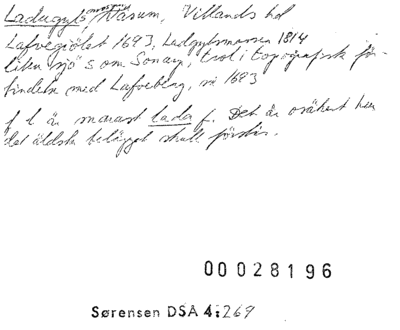 Ladugylsmossen, Näsum, Villands hd
Lafvegiölet 1693, Ladgylsmossen 1814
liten sjö s om Sonarp, trol i topografisk för-
bindelse med Lafveberg, se 1693
f l är snarast lada f. Det är osäkert hur
det äldsta belägget skall förstås.
00028196
Sørensen DSA 4:269